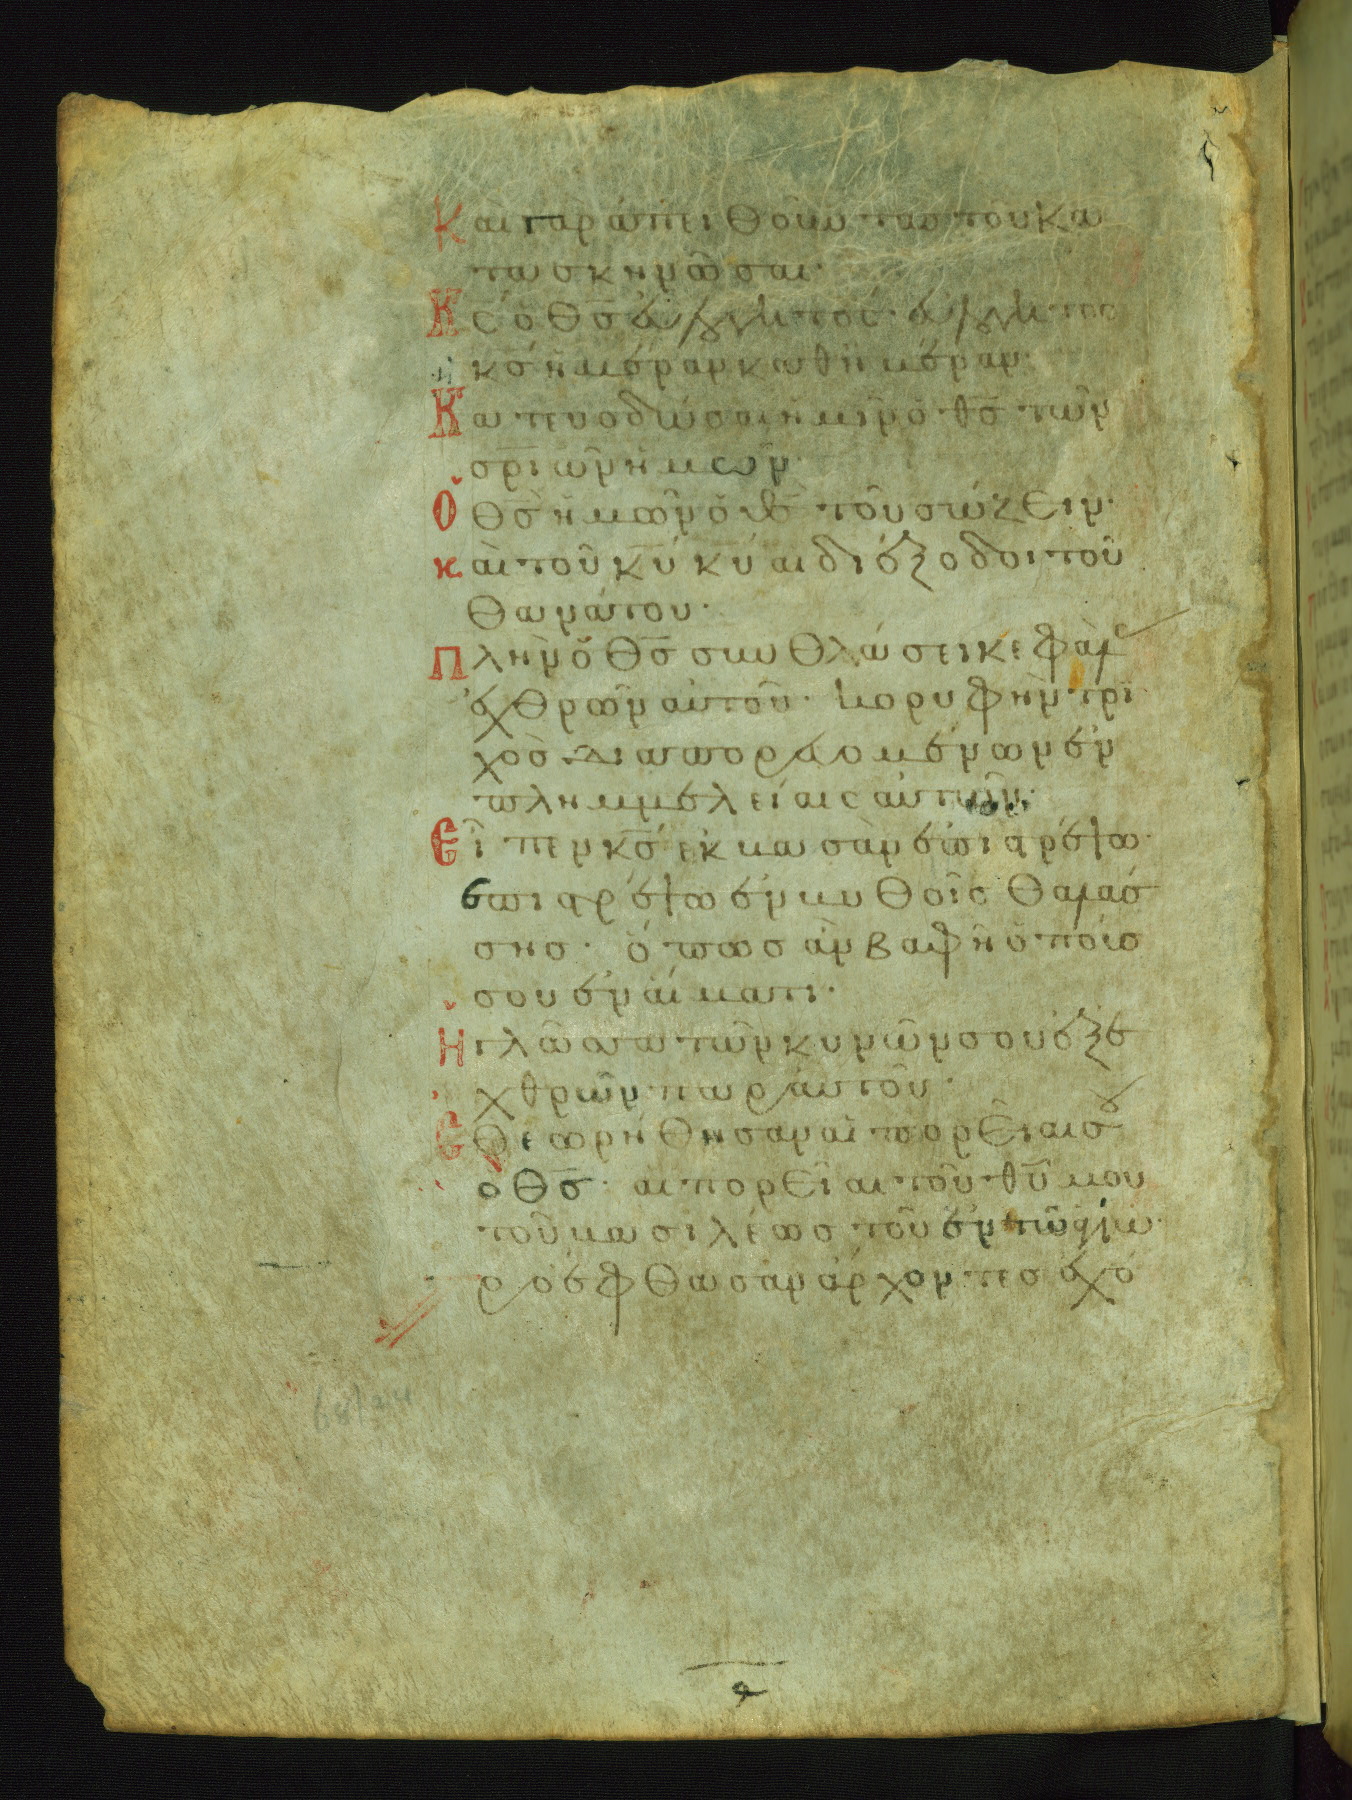 Καὶ γὰρ ἀπειθοῦντας τοῦ κα
τασκηνῶσαι·
Κς ὁ θς εὐλογητός· εὐλογητὸς
κς ἡμέραν καθ ἡμέραν·
Κατευοδώσαι ἡμῖν ὁ θς τῶν
σριῶν ἡμῶν·
Ὁ θς ἡμῶν ὁ θς τοῦ σώζειν·
καὶ τοῦ κυ κυ αι διέξοδοι τοῦ
θανάτου·
Πλὴν ὁ θς συνθλάσει κεφαλ
ἐχθρῶν αὐτοῦ· κορυφὴν τρι
χὸς διαπορευομένων ἐν
πλημμελείαις αὐτῶν·
Εἶπεν κς ἐκ βασὰν ἐπιστρέψω·
ἐπιστρέψω ἐν βυθοῖς θαλάσ
σης· ὅπως ἂν βαφῆ ὁ ποῦσ
σου ἐν αἵματι·
Ἡ γλῶσσα τῶν κυνῶν σου ἐξ ἐ
χθρῶν παρ αὐτοῦ·
Ἐθεωρήθησαν αἱ πορεῖαι σου
ο θς· αι πορεῖαι τοῦ θῦ μου
τοῦ βασιλέως τοῦ ἐν τῶ ἁγίω·
Προέφθασαν ἄρχοντες ἐχό
68/24